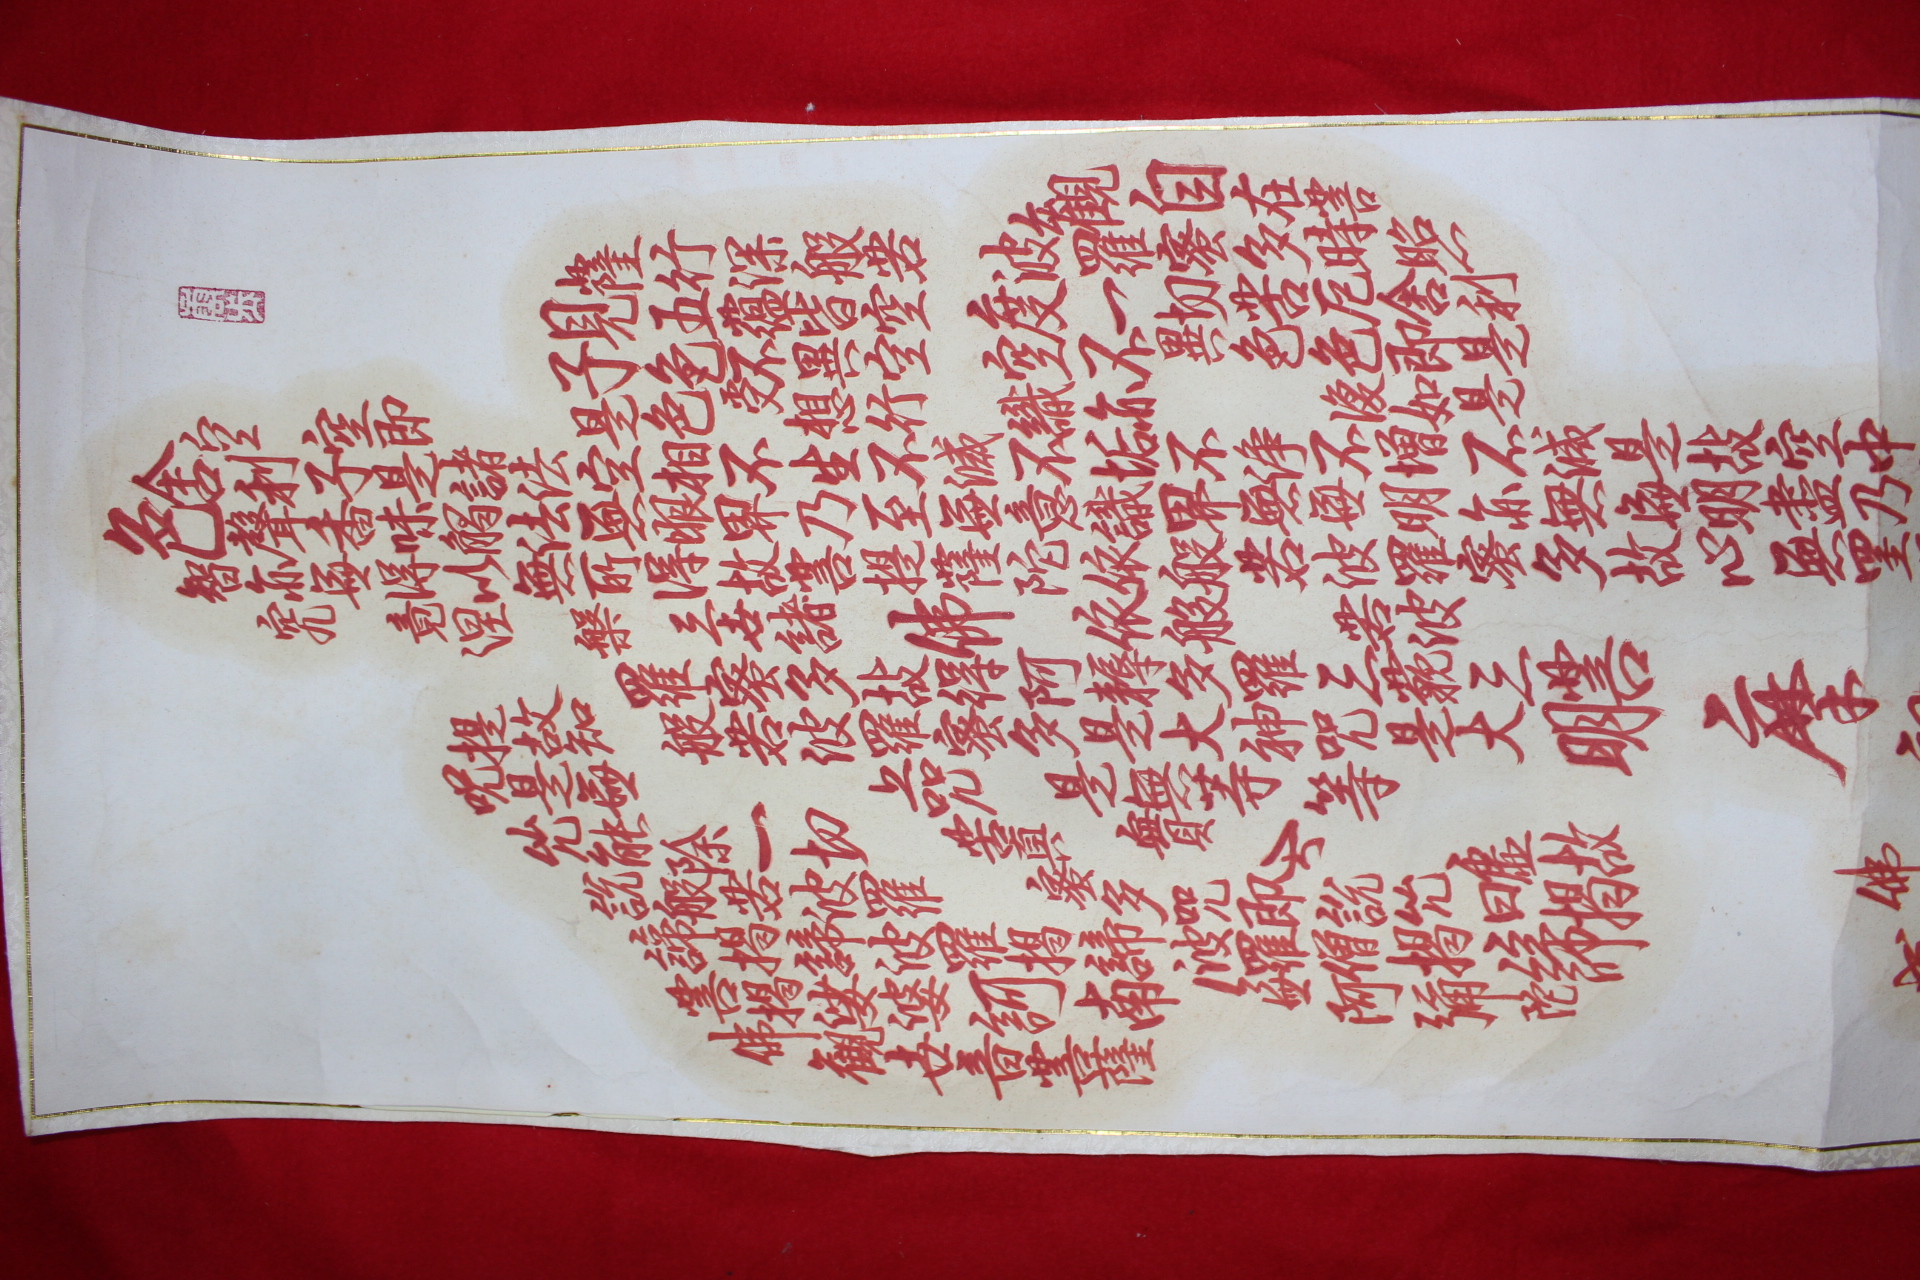 觀自在菩
薩行深般若波羅蜜多時照
見五蘊皆空度一切苦厄舍利
子色不異空空不異色色即是
空空即是色受想行識亦復如是
舍利子是諸法空相不生不滅不垢不淨不增不減是故空中
色聲香味觸法無眼界乃至無意識界無無明亦無無明盡乃
智亦無得以無所得故菩提薩陀依般若波羅蜜多故心無罣
究竟涅槃三世諸佛依般若波
羅蜜多故得阿耨多羅三藐三菩
提故知般若波羅蜜多是大神咒是大明
咒是無上咒是無等等
咒能除一切苦真實不虛故
說般若波羅蜜多咒即說咒曰揭
諦揭諦波羅揭諦波羅僧揭諦
菩揭娑婆訶南無阿彌陀
佛觀世音菩薩
摩
佛